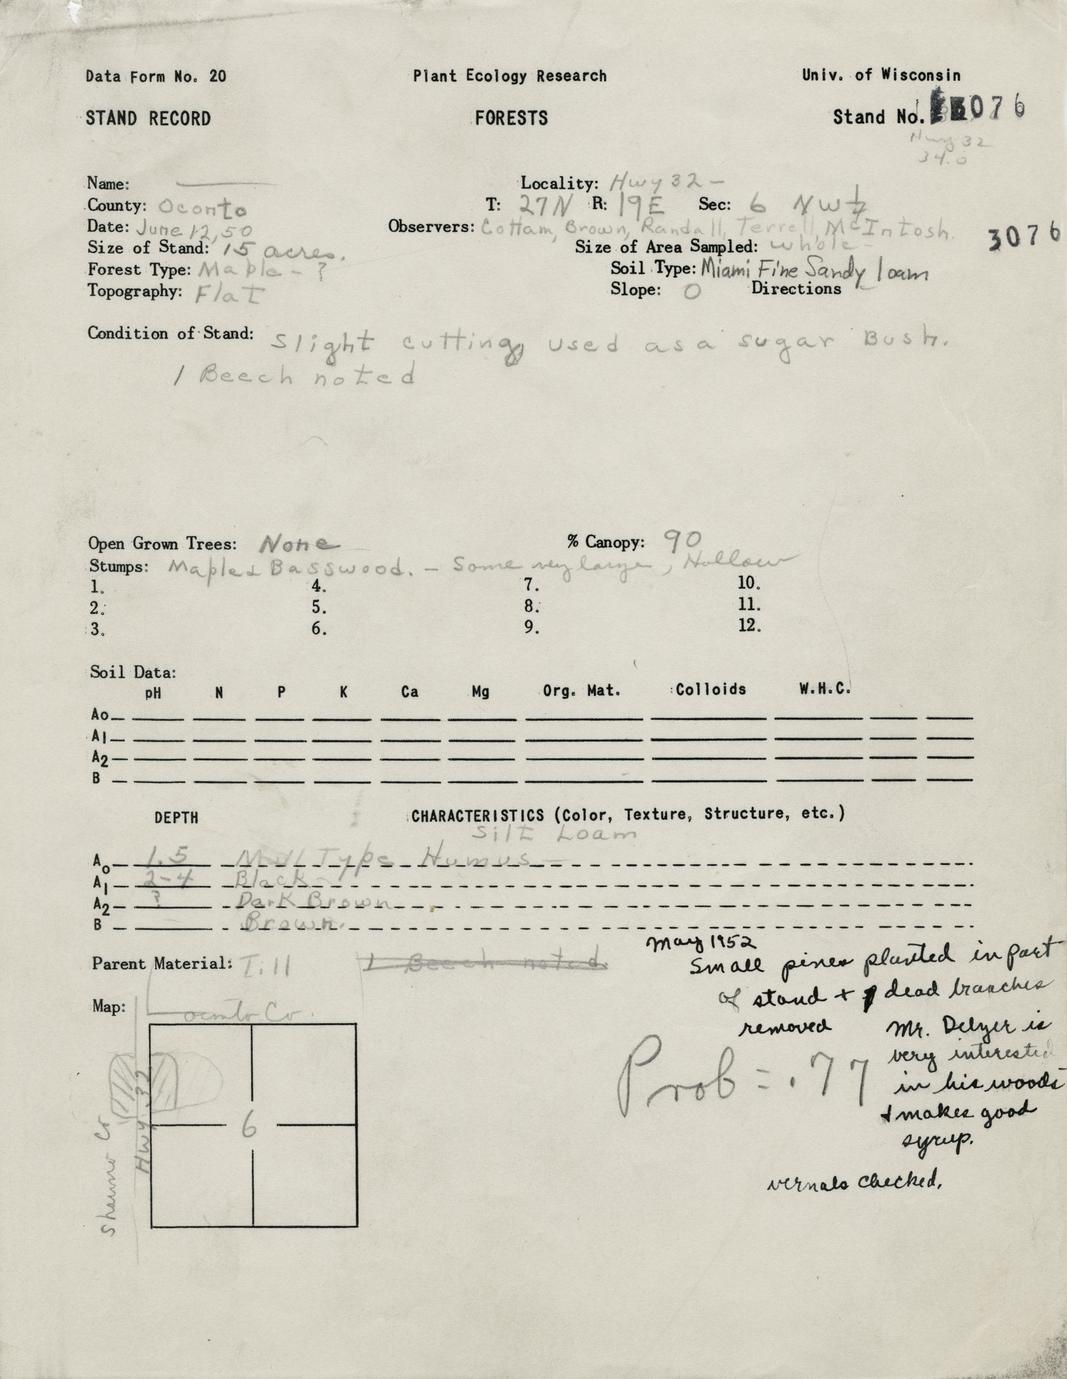 Data Form No. 20 Plant Ecology Research Univ. of Wisconsin
STAND RECORD FORESTS Stand No. 3076
Hwy 32
34.0
Name: Locality: Hwy 32 –
County: Oconto T: 27N R: 19E Sec: 6 NW¼
Date: June 12, 50 Observers: Cottam, Brown, Randall, Terrell, McIntosh.
3076
Size of Stand: 15 acres. Size of Area Sampled: whole –
Forest Type: Maple – ? Soil Type: Miami Fine Sandy loam
Topography: Flat Slope: 0 Directions –
Condition of Stand: Slight cutting, used as a sugar Bush.
1 Beech noted
Open Grown Trees: None % Canopy: 90
Stumps: Maple & Basswood. – Some very large, Hollow
1. 4. 7. 10.
2. 5. 8. 11.
3. 6. 9. 12.
Soil Data:
pH N P K Ca Mg Org. Mat. Colloids W.H.C.
Ao
A1
A2
B
DEPTH CHARACTERISTICS (Color, Texture, Structure, etc.)
Silt Loam
Ao 1.5 Mull Type Humus –
A1 2-4 Black –
A2 ? Dark Brown
B Brown.
Parent Material: Till 1 Beech noted.
May 1952
Small pines planted in part
of stand + dead branches
removed
Map: Oconto Co.
Mr. Delzer is
very interested
in his woods
& makes good
syrup.
Prob = .77
6
Hwy 32
Shawno Co
vernals checked.